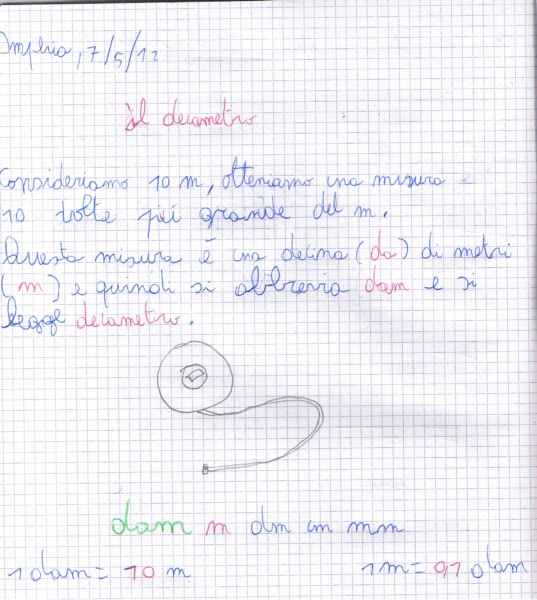 Imperia, 7/5/12
Il decametro
Consideriamo 10 m, otteniamo una misura
10 volte più grande del m.
Questa misura è una decina (da) di metri
(m) e quindi si abbrevia dam e si
legge decametro.
dam m dm cm mm
1 dam = 10 m 1 m = 0,1 dam